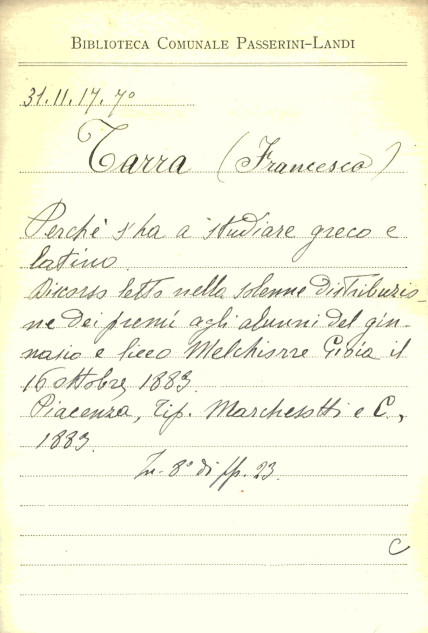 BIBLIOTECA COMUNALE PASSERINI-LANDI
31.11.17.7º
Tarra (Francesco)
Perchè s'ha a studiare greco e
latino.
Discorso letto nella solenne distribuzio-
ne dei premi agli alunni del gin-
nasio e liceo Melchiorre Gioia il
16 ottobre 1883.
Piacenza, Tip. Marchesotti e C.,
1883.
In-8º di pp. 23.
C